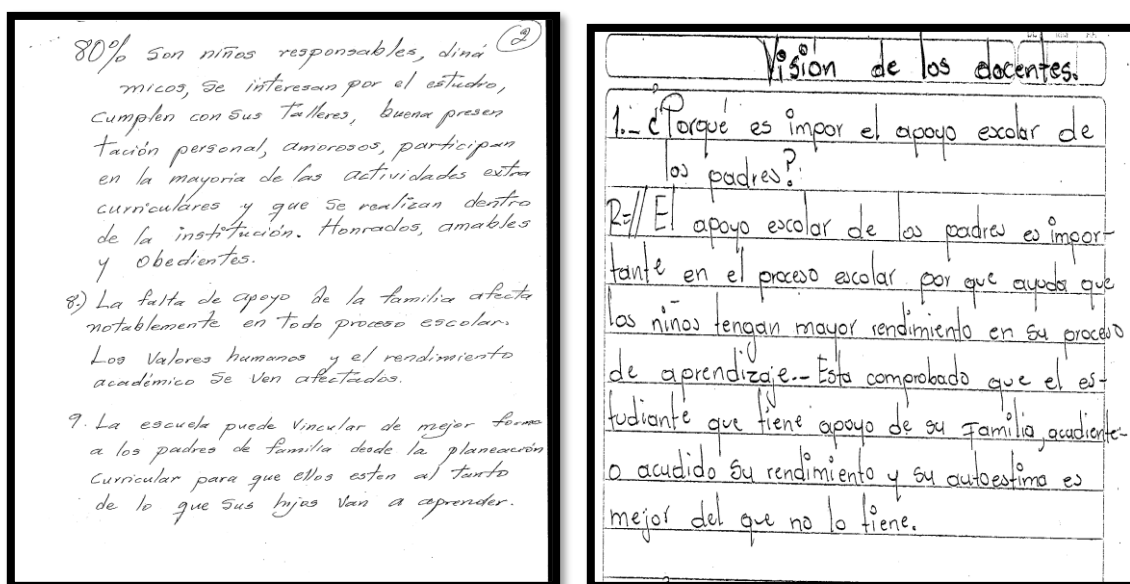 2
80% Son niños responsables, diná
micos, se interesan por el estudio,
cumplen con sus Talleres, buena presen
tación personal, amorosos, participan
en la mayoria de las actividades extra
curriculares y que se realizan dentro
de la institución. Honrados, amables
y obedientes.
8.) La falta de apoyo de la familia afecta
notablemente en todo proceso escolar.
Los Valores humanos y el rendimiento
académico se ven afectados.
9. La escuela puede Vincular de mejor forma
a los padres de familia desde la planeación
Curricular para que ellos esten al tanto
de lo que sus hijos Van a aprender.
Visión de los docentes.
1.- ¿Porqué es impor el apoyo escolar de
los padres?
R=// El apoyo escolar de los padres es impor-
tante en el proceso escolar por que ayuda que
los niños tengan mayor rendimiento en su proceso
de aprendizaje.- Esta comprobado que el es-
tudiante que tiene apoyo de su Familia, acudiente-
o acudido su rendimiento y su autoestima es
mejor del que no lo tiene.